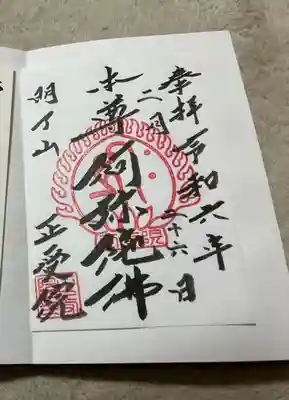 奉拝 令和六年
二月 二十六日
本尊 阿弥陀佛
明了山 正受院